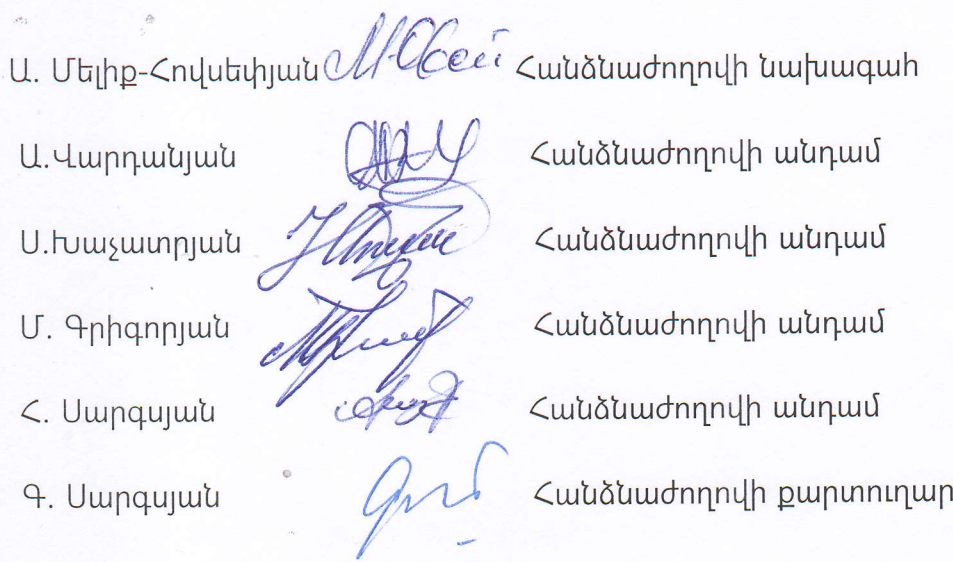 Ա. Մելիք-Հովսեփյան Հանձնաժողովի նախագահ
Ա.Վարդանյան Հանձնաժողովի անդամ
Ս.Խաչատրյան Հանձնաժողովի անդամ
Մ. Գրիգորյան Հանձնաժողովի անդամ
Հ. Սարգսյան Հանձնաժողովի անդամ
Գ. Սարգսյան Հանձնաժողովի քարտուղար